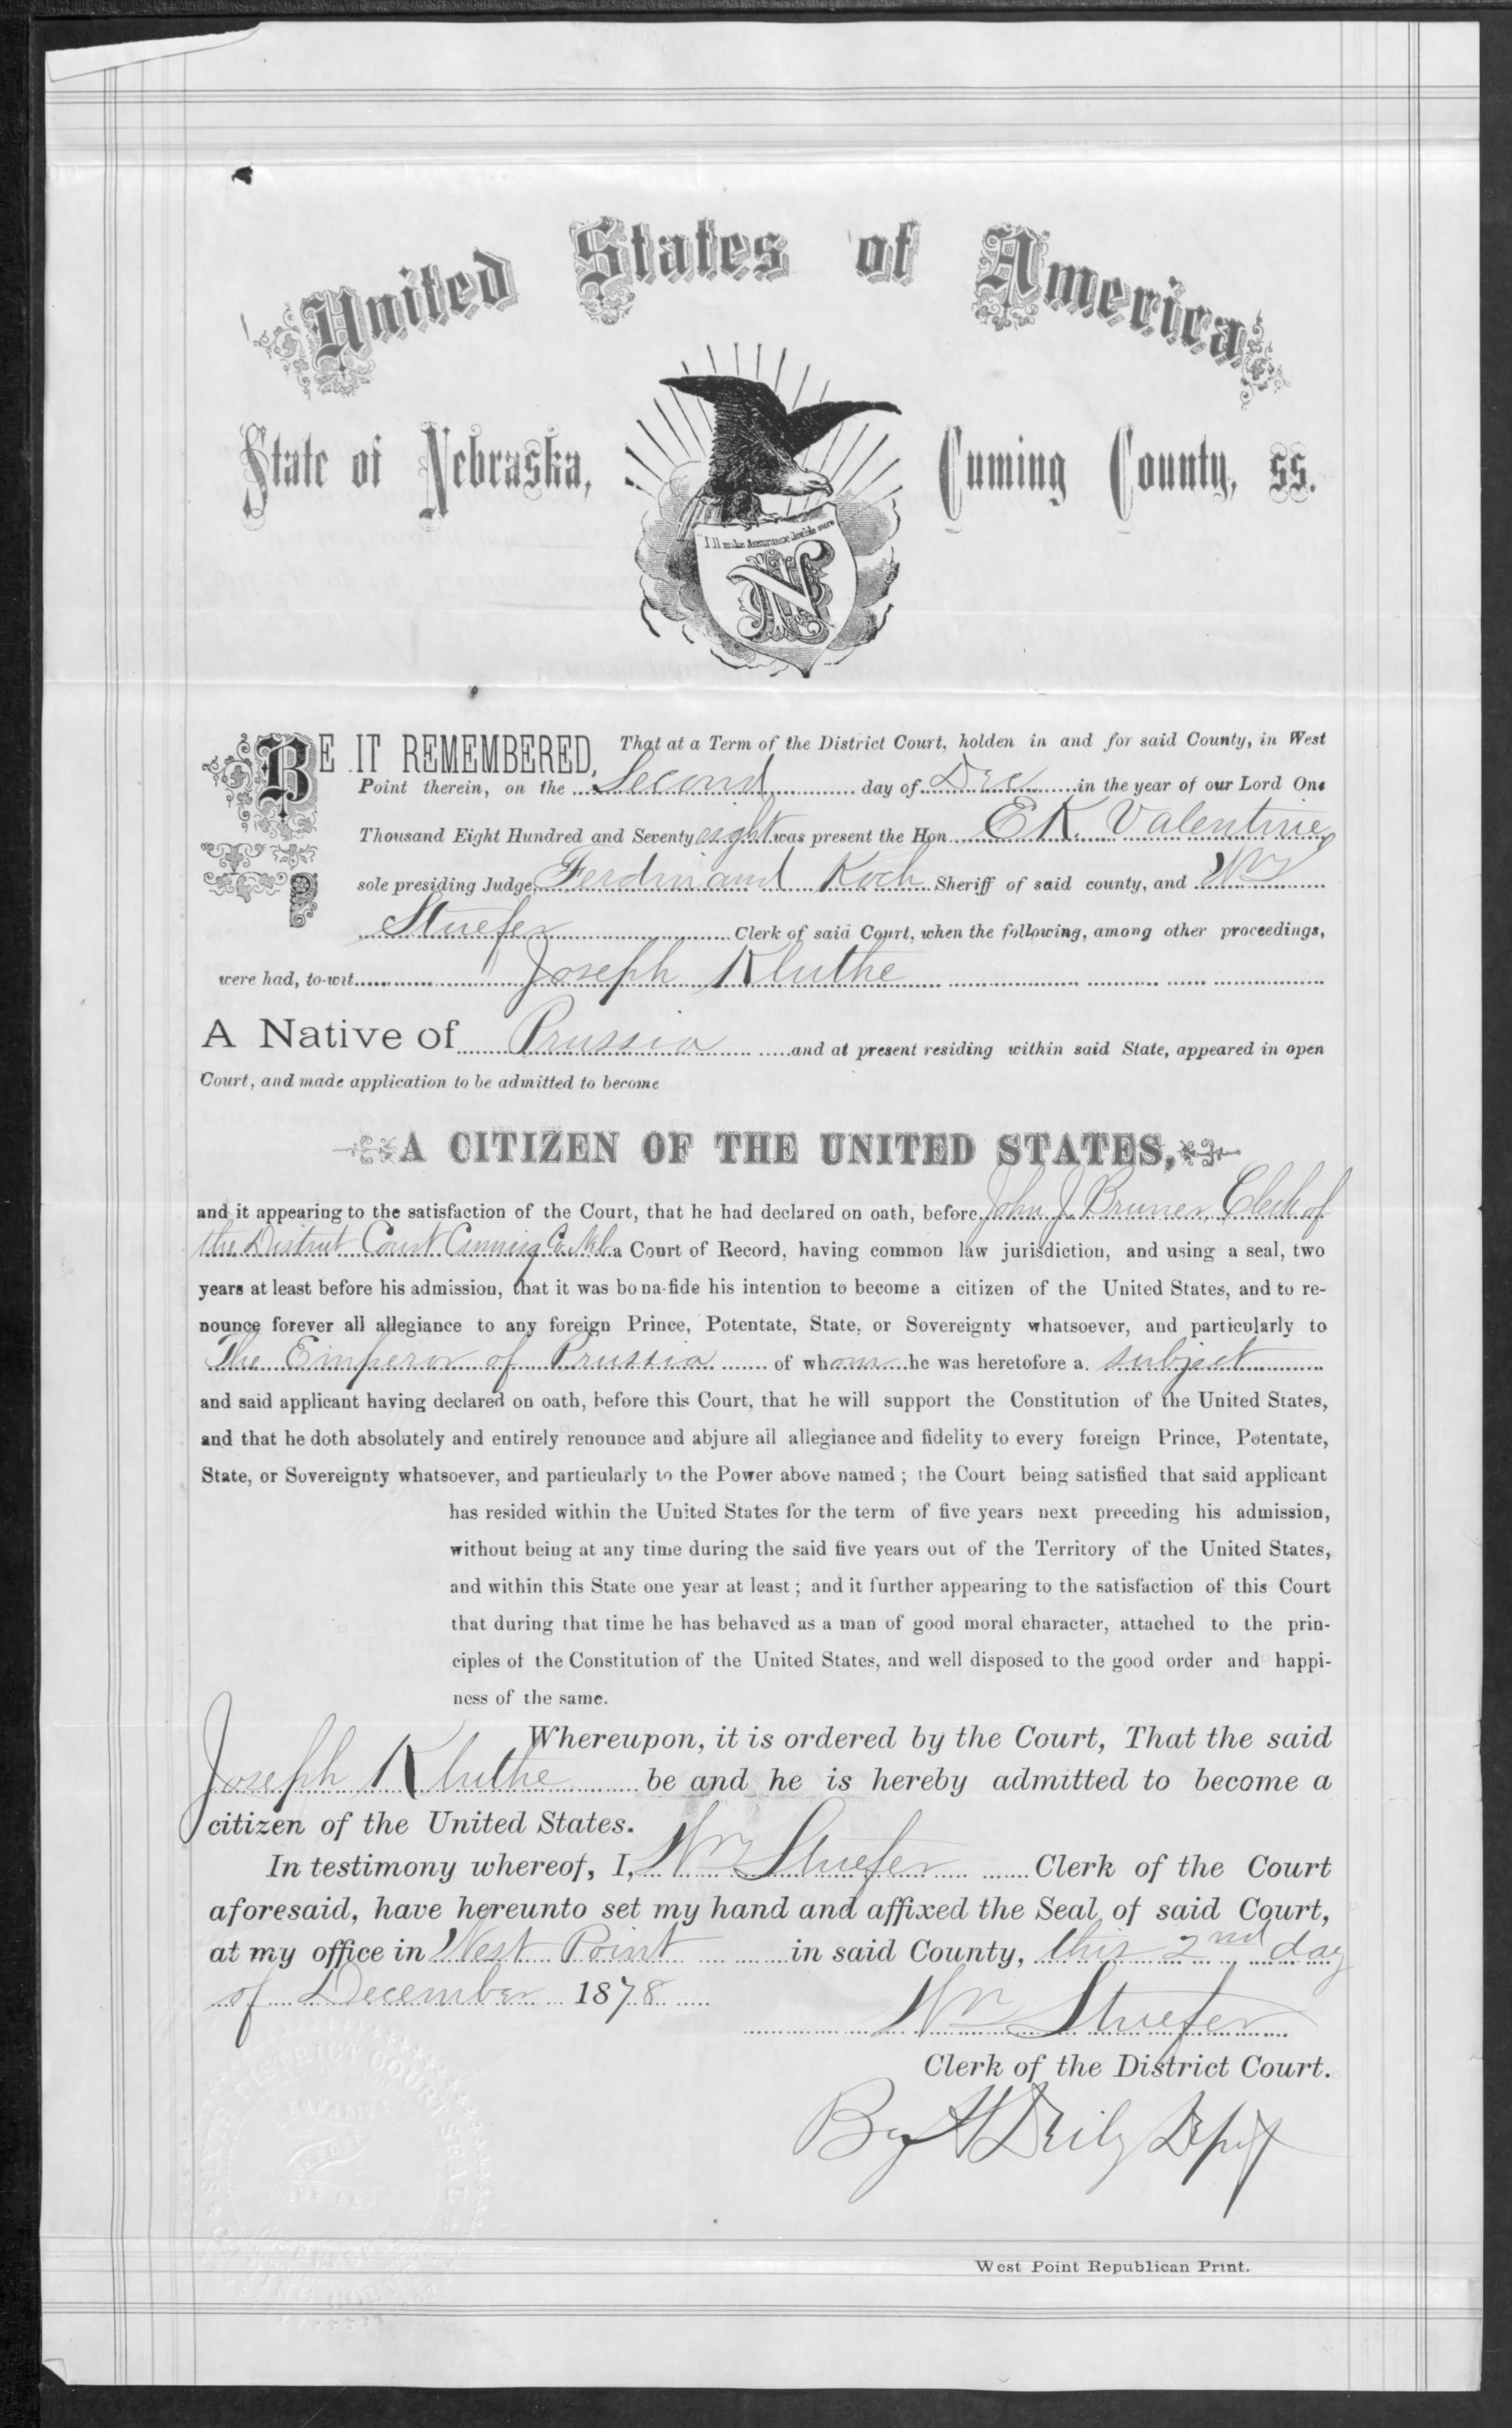 United States of America
State of Nebraska, Cuming County, ss.
"I'll make Assurance double sure
N
BE IT REMEMBERED, That at a Term of the District Court, holden in and for said County, in West
Point therein, on the Second day of Dec in the year of our Lord One
Thousand Eight Hundred and Seventy eight was present the Hon E K. Valentine
sole presiding Judge, Ferdinand Koch Sheriff of said county, and Wm
Stuefer Clerk of said Court, when the following, among other proceedings,
were had, to-wit Joseph Kluthe
A Native of Prussia and at present residing within said State, appeared in open
Court, and made application to be admitted to become
A CITIZEN OF THE UNITED STATES,
and it appearing to the satisfaction of the Court, that he had declared on oath, before John J. Bruner, Clerk of
the District Court Cuming Co. Neb. a Court of Record, having common law jurisdiction, and using a seal, two
years at least before his admission, that it was bona-fide his intention to become a citizen of the United States, and to re-
nounce forever all allegiance to any foreign Prince, Potentate, State, or Sovereignty whatsoever, and particularly to
The Emperor of Prussia of whom he was heretofore a subject
and said applicant having declared on oath, before this Court, that he will support the Constitution of the United States,
and that he doth absolutely and entirely renounce and abjure all allegiance and fidelity to every foreign Prince, Potentate,
State, or Sovereignty whatsoever, and particularly to the Power above named; the Court being satisfied that said applicant
has resided within the United States for the term of five years next preceding his admission,
without being at any time during the said five years out of the Territory of the United States,
and within this State one year at least; and it further appearing to the satisfaction of this Court
that during that time he has behaved as a man of good moral character, attached to the prin-
ciples of the Constitution of the United States, and well disposed to the good order and happi-
ness of the same.
Whereupon, it is ordered by the Court, That the said
Joseph Kluthe be and he is hereby admitted to become a
citizen of the United States.
In testimony whereof, I, Wm Stuefer Clerk of the Court
aforesaid, have hereunto set my hand and affixed the Seal of said Court,
at my office in West Point in said County, this 2nd day
of December 1878
Wm Stuefer
Clerk of the District Court.
By Deily Deputy
DISTRICT COURT SEAL
West Point Republican Print.